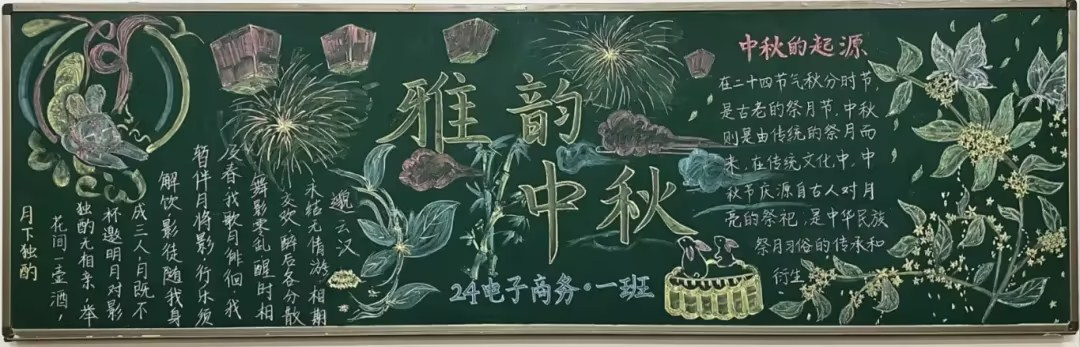 月下独酌
花间一壶酒，
独酌无相亲。举
杯邀明月对影
成三人月既不
解饮影徒随我身
暂伴月将影行乐须
及春我歌月徘徊我
舞影零乱醒时相
交欢醉后各分散
永结无情游，相期
邈云汉
雅韵
中秋
24电子商务·一班
中秋的起源
在二十四节气秋分时节，
是古老的祭月节，中秋
则是由传统的祭月而
来，在传统文化中，中
秋节庆源自古人对月
亮的祭祀，是中华民族
祭月习俗的传承和
衍生